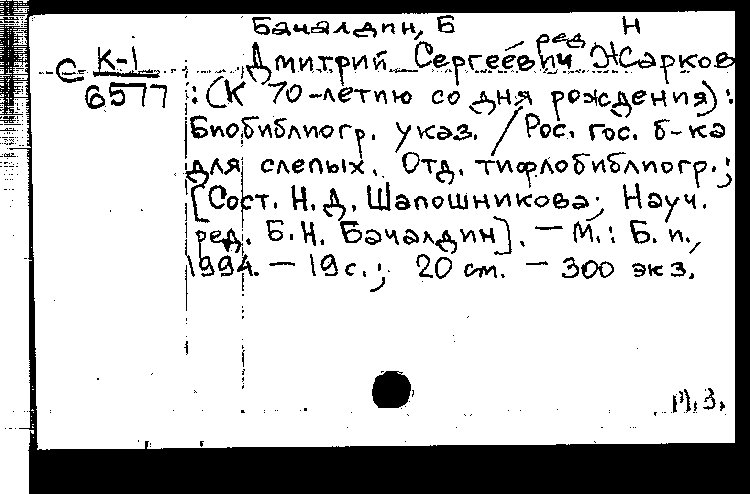 Бачалдин, Б Н
ред
С К-1 Дмитрий Сергеевич Жарков
6577 : (К 70-летию со дня рождения) :
Биобиблиогр. указ. / Рос. гос. б-ка
для слепых. Отд. тифлобиблиогр. ;
[Сост. Н. Д. Шапошникова; Науч.
ред. Б. Н. Бачалдин]. — М. : Б. и.,
1994. — 19 с. ; 20 см. — 300 экз.
М. З.